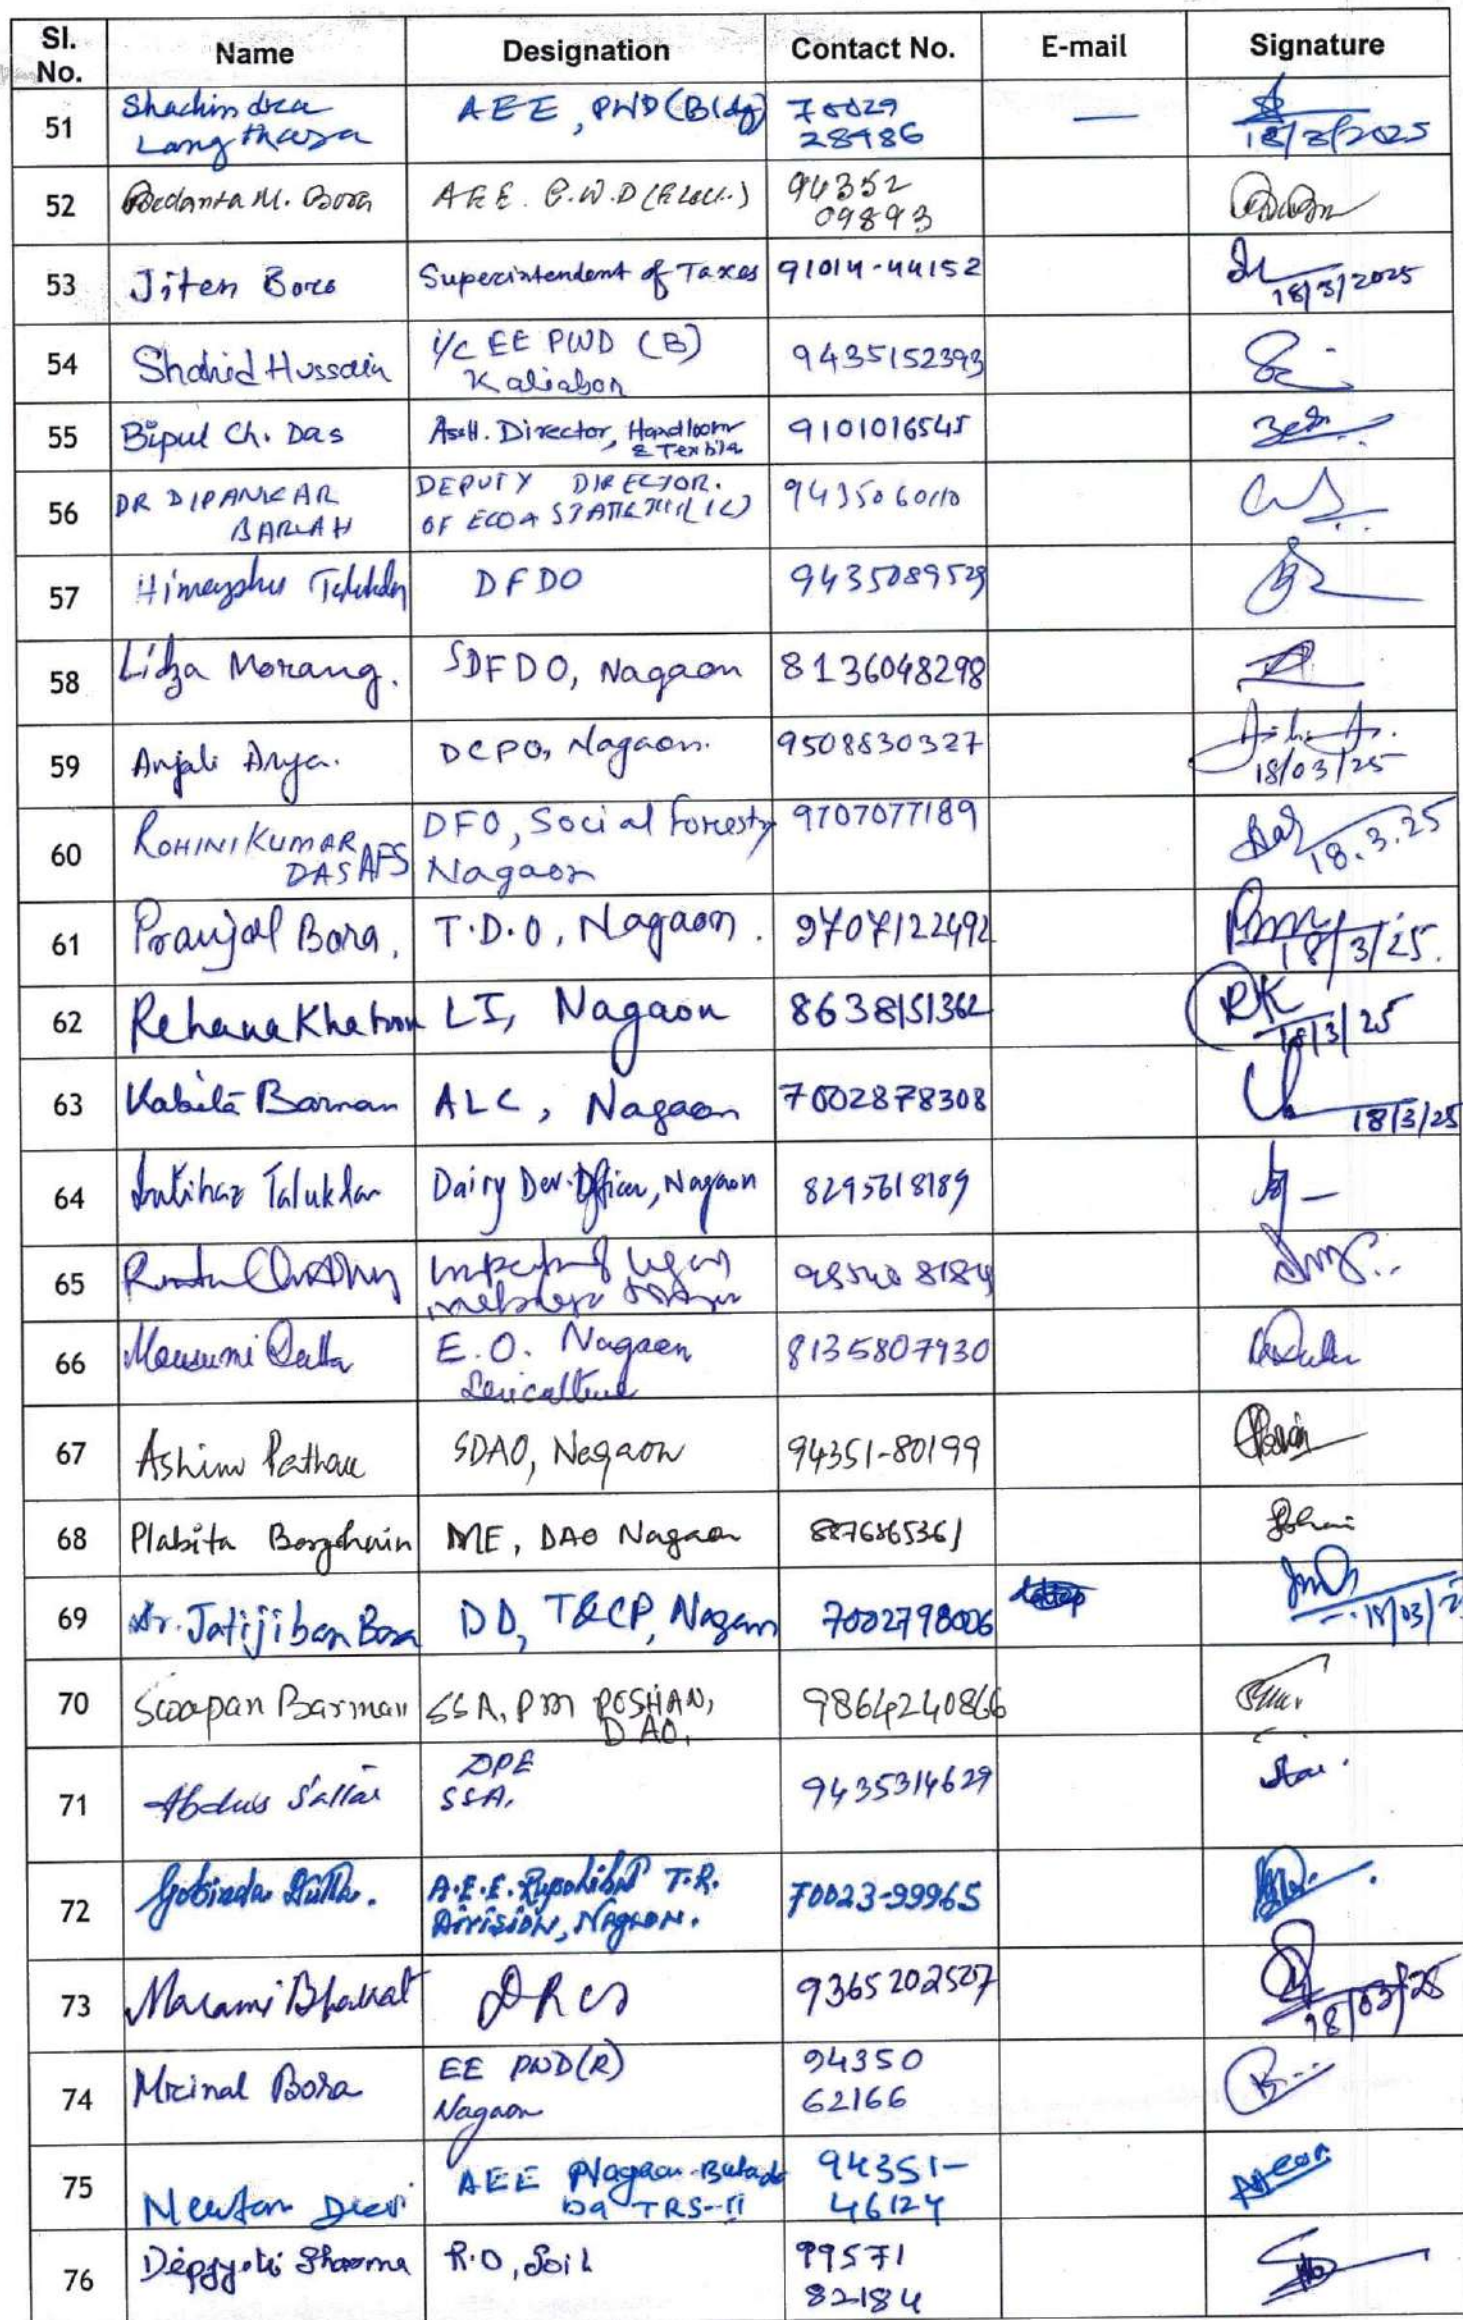 Sl. No. Name Designation Contact No. E-mail Signature
51 Shachindra Langthasa AEE, PWD (Bldg) 70029 28486 — 18/3/2025
52 Bedanta M. Bora AEE. P.W.D (Elect.) 94352 09893
53 Jiten Boro Superintendent of Taxes 91014-44152 18/3/2025
54 Shahid Hussain i/c EE PWD (B) Kaliabor 9435152393
55 Bipul Ch. Das Asstt. Director, Handloom & Textile 9101016545
56 DR DIPANKAR BARUAH DEPUTY DIRECTOR. OF ECO & 94350
57 Talukdar DFDO 9435089529
58 Lidza Morang. SDFDO, Nagaon 8136048298
59 Anjali Arya. DCPO, Nagaon. 9508830327 18/03/25
60 ROHINI KUMAR DAS AFS DFO, Social Forestry Nagaon 9707077189 18.3.25
61 Pranjal Bora. T.D.O, Nagaon. 9707122492 18/3/25.
62 Rehana Khatoon LI, Nagaon 8638151362 RK 18/3/25
63 Kabita Barman ALC, Nagaon 7002878308 18/3/25
64 Talukdar Dairy Dev. Officer, Nagaon 8295618189
65
66 Mousumi Dutta E.O. Nagaon Sericulture 8135807930
67 Ashim Pathak SDAO, Nagaon 94351-80199
68 Plabita Borgohain ME, DAO Nagaon 8876865361
69 Dr. Jatijiban Bora DD, T&CP, Nagaon 7002798006 18/03/2
70 Swapan Barman SSA, PM POSHAN, DAO, 9864240866
71 Abdus Sattar DPE SSA, 9435314629
72 Gobinda Dutta. A.E.E. Rupohihat T.R. Division, Nagaon. 70023-99965
73 Marami Bhakat DRCS 9365202527 18/03/25
74 Mrinal Bora EE PWD(R) Nagaon 94350 62166
75 Newton Devi AEE Nagaon TRS-II 94351- 46124
76 Depjyoti Sharma R.O, Soil 99571 82184